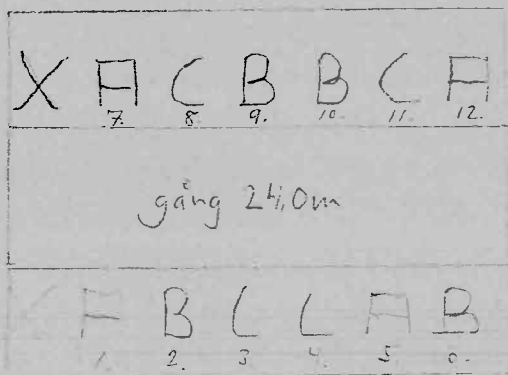 X A C B B C A
7. 8. 9. 10. 11. 12.
gång 24,0m
A B C C A B
1. 2. 3 4. 5. 6.